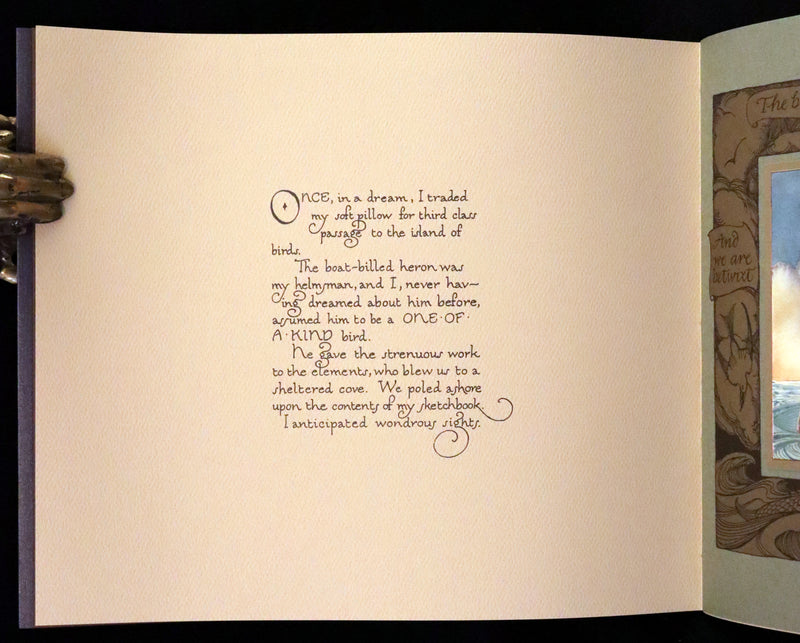 ONCE, in a dream, I traded
my soft pillow for third class
passage to the island of
birds.
The boat-billed heron was
my helmsman, and I, never hav-
ing dreamed about him before,
assumed him to be a ONE·OF·
A·KIND bird.
He gave the strenuous work
to the elements, who blew us to a
sheltered cove. We poled ashore
upon the contents of my sketchbook.
I anticipated wondrous sights.
The b
And
we are
betwixt